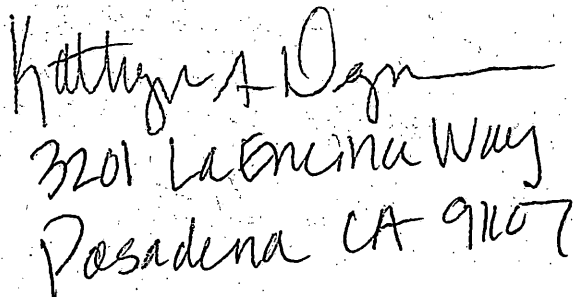 Kathryn A
3201 La Encina Way
Pasadena CA 91107